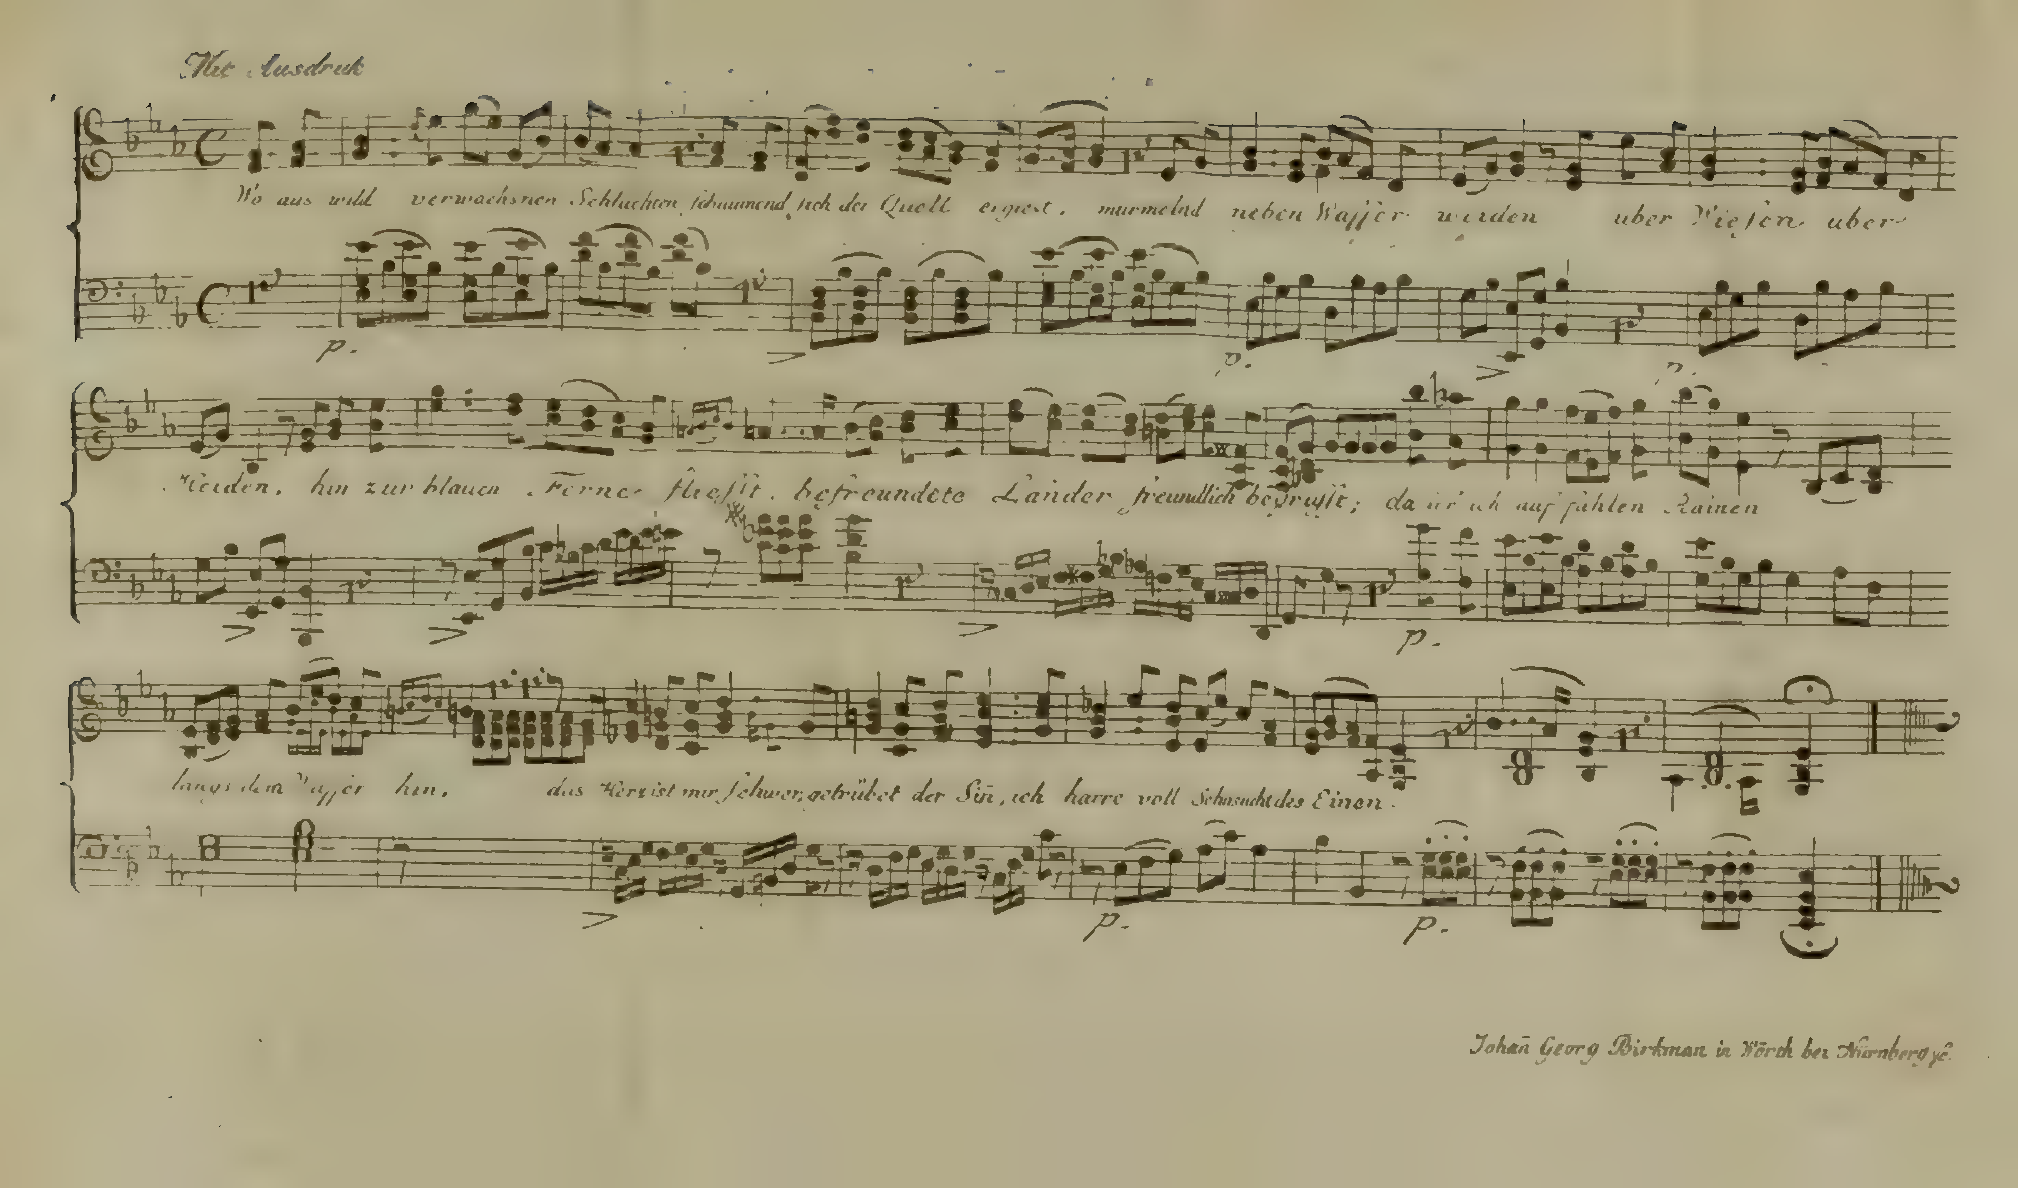 Mit Ausdruk
Wo aus wild verwachsnen Schluchten schäumend sich der Quell ergiest. murmelnd neben Wasser weiden uber Wiesen uber
Heiden. hin zur blauen Ferne fliesst. befreundete Länder freundlich begrüsst; da irr ich auf fahlen Rainen
p.
>
p.
>
p.
>
>
>
p.
längs dem Wasser hin. das Herz ist mir schwer, getrübet der Sin̅, ich harre voll Sehnsucht des Einen.
>
p.
p.
Johan̅ Georg Birkman in Wörth bei Nürnberg sc.